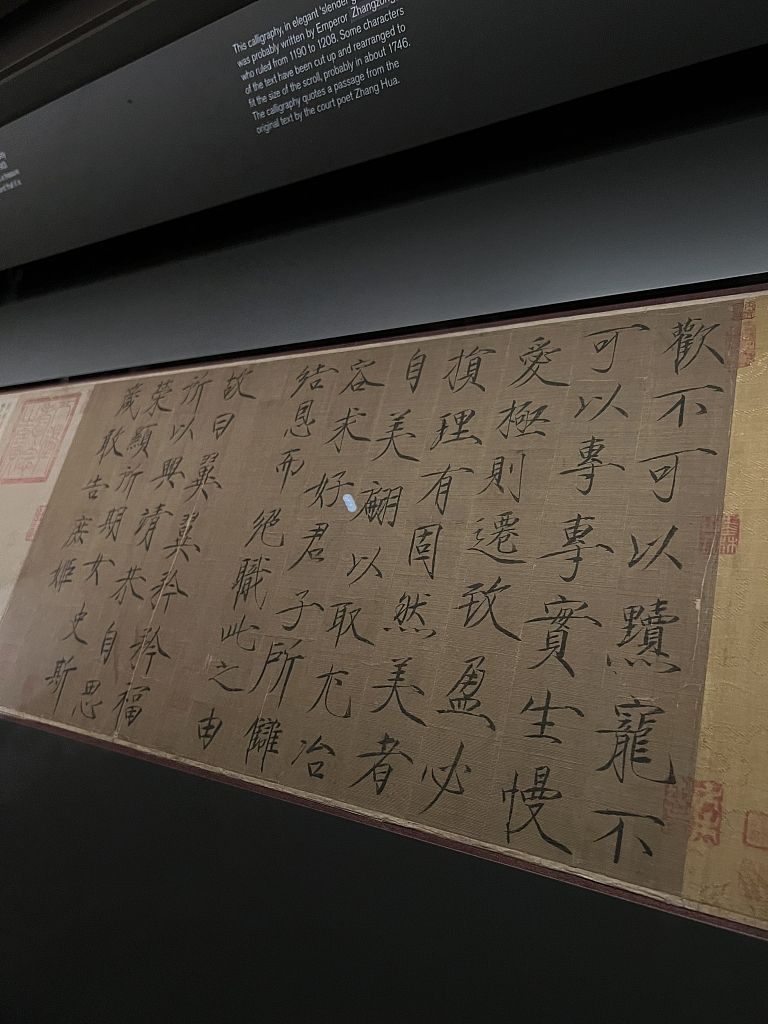 This calligraphy, in elegant 'slender
was probably written by Emperor Zhangzong
who ruled from 1190 to 1208. Some characters
of the text have been cut up and rearranged to
fit the size of the scroll, probably in about 1746.
The calligraphy quotes a passage from the
original text by the court poet Zhang Hua.
歡不可以黷寵不
可以專專實生慢
愛極則遷致盈必
損理有固然美者
自美翩以取尤冶
容求好君子所讎
結恩而絕職此之由
故曰翼翼矜矜福
所以興靖恭自思
榮顯所期女史斯
箴敢告庶姬